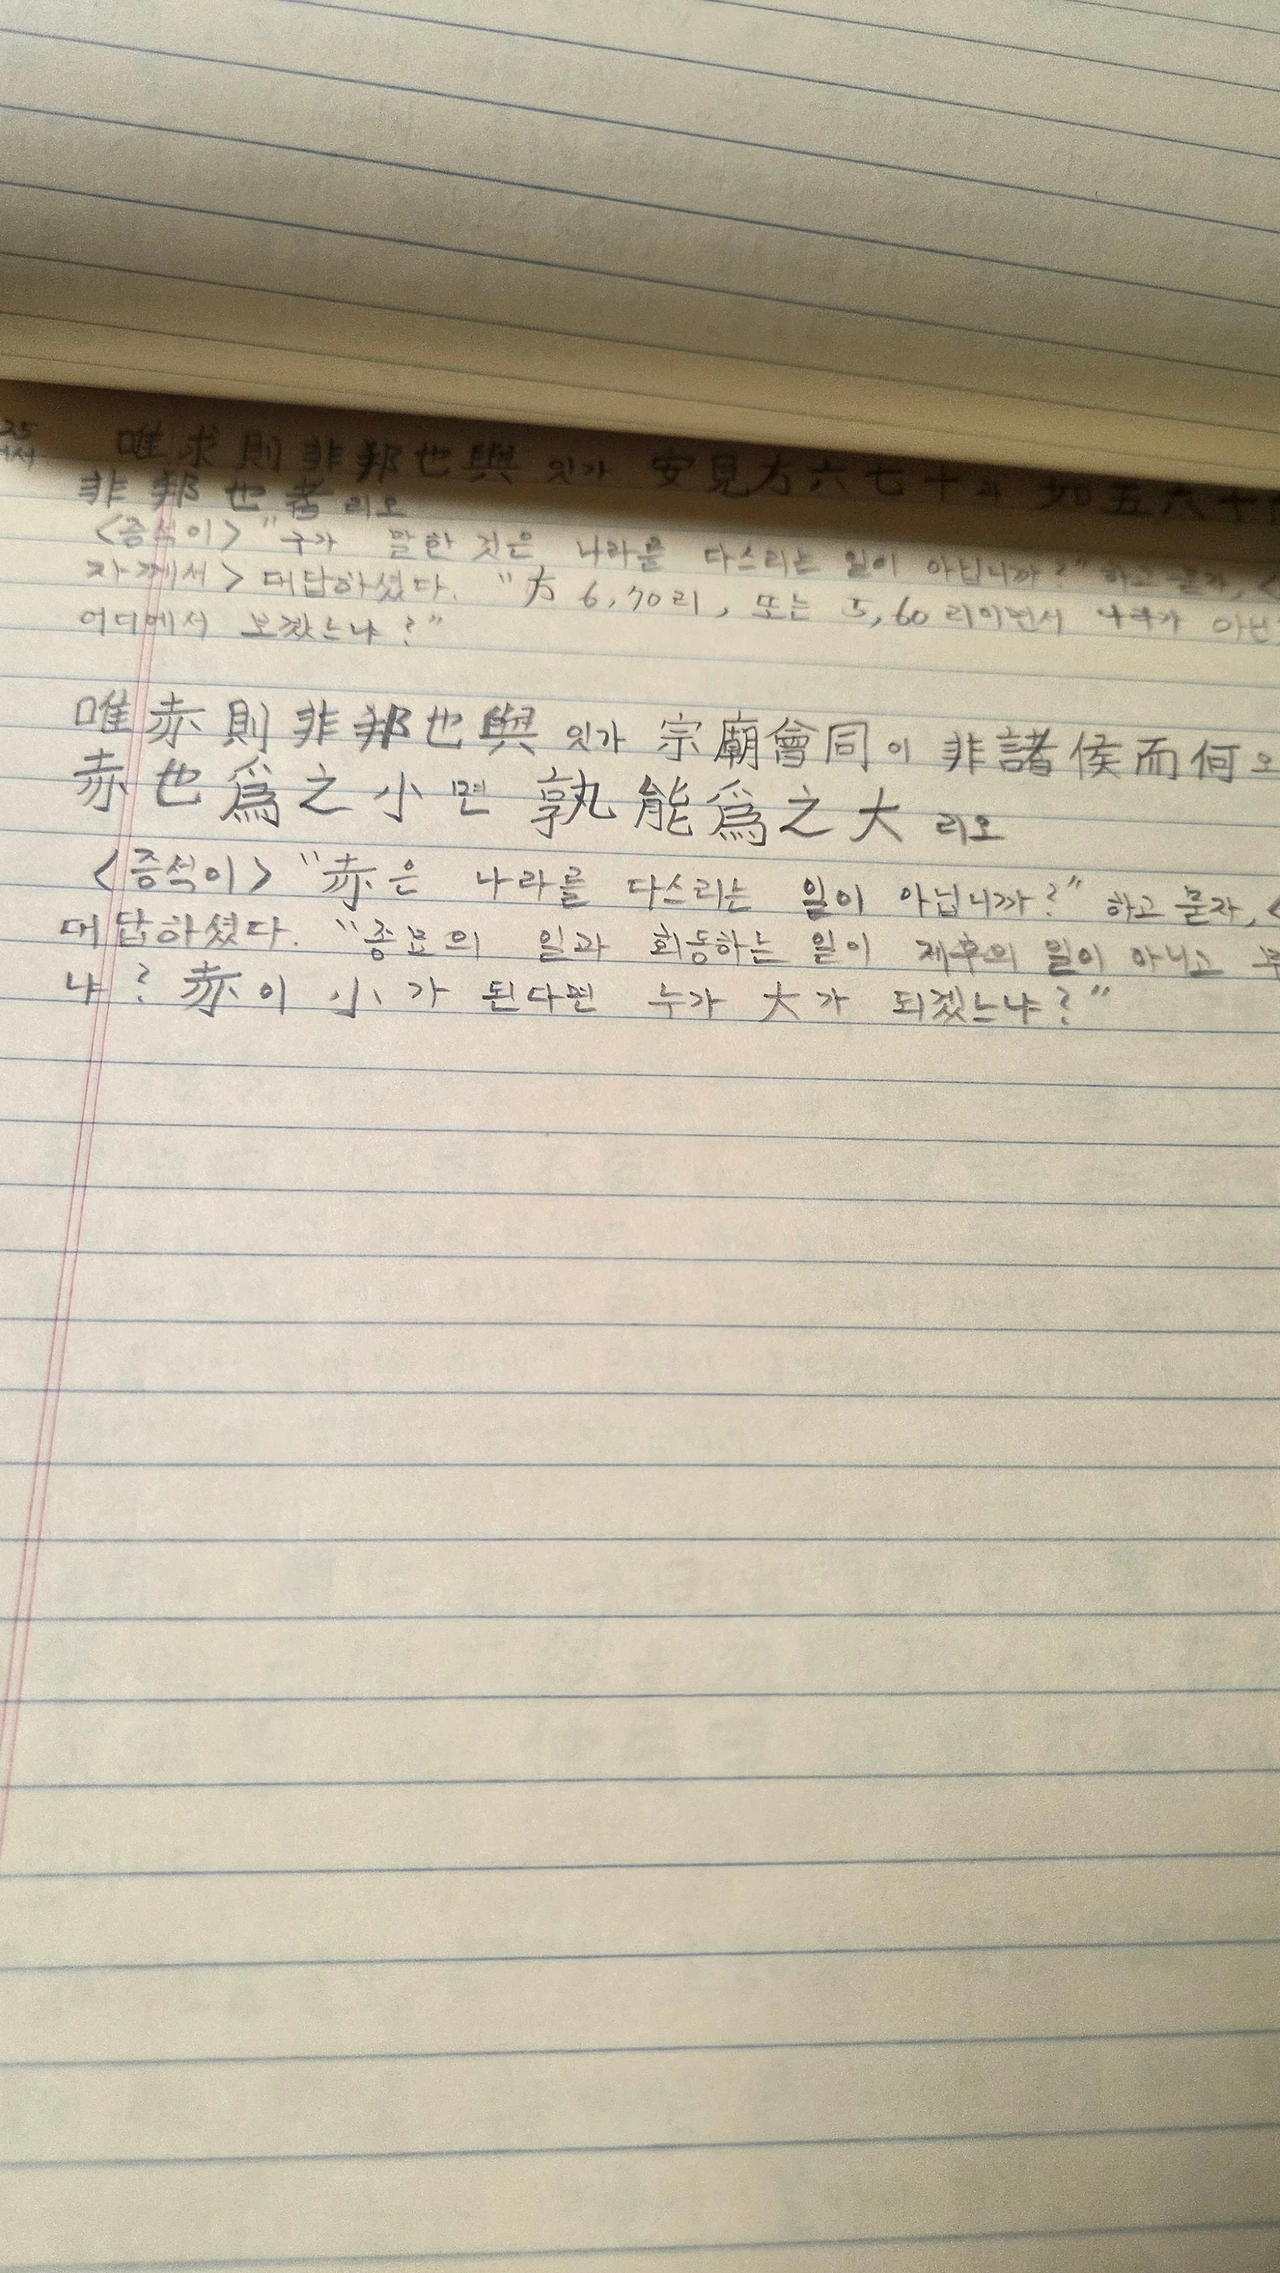 25
唯求則非邦也與 잇가 安見方六七十 如五六十
非邦也者 리오
<증석이> "구가 말한 것은 나라를 다스리는 일이 아닙니까?" 하고 묻자, <
자께서> 대답하셨다. "方 6, 70리, 또는 5, 60리이면서 나라가 아닌
어디에서 보겠느냐?"
唯赤則非邦也與 잇가 宗廟會同 이 非諸侯而何 오
赤也爲之小 면 孰能爲之大 리오
<증석이> "赤은 나라를 다스리는 일이 아닙니까?" 하고 묻자, <
대답하셨다. "종묘의 일과 회동하는 일이 제후의 일이 아니고
냐? 赤이 小가 된다면 누가 大가 되겠느냐?"